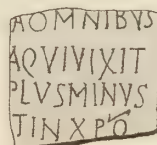 AOMNIBVS
AQVIVIXIT
PLVSMINVS
TINXPO